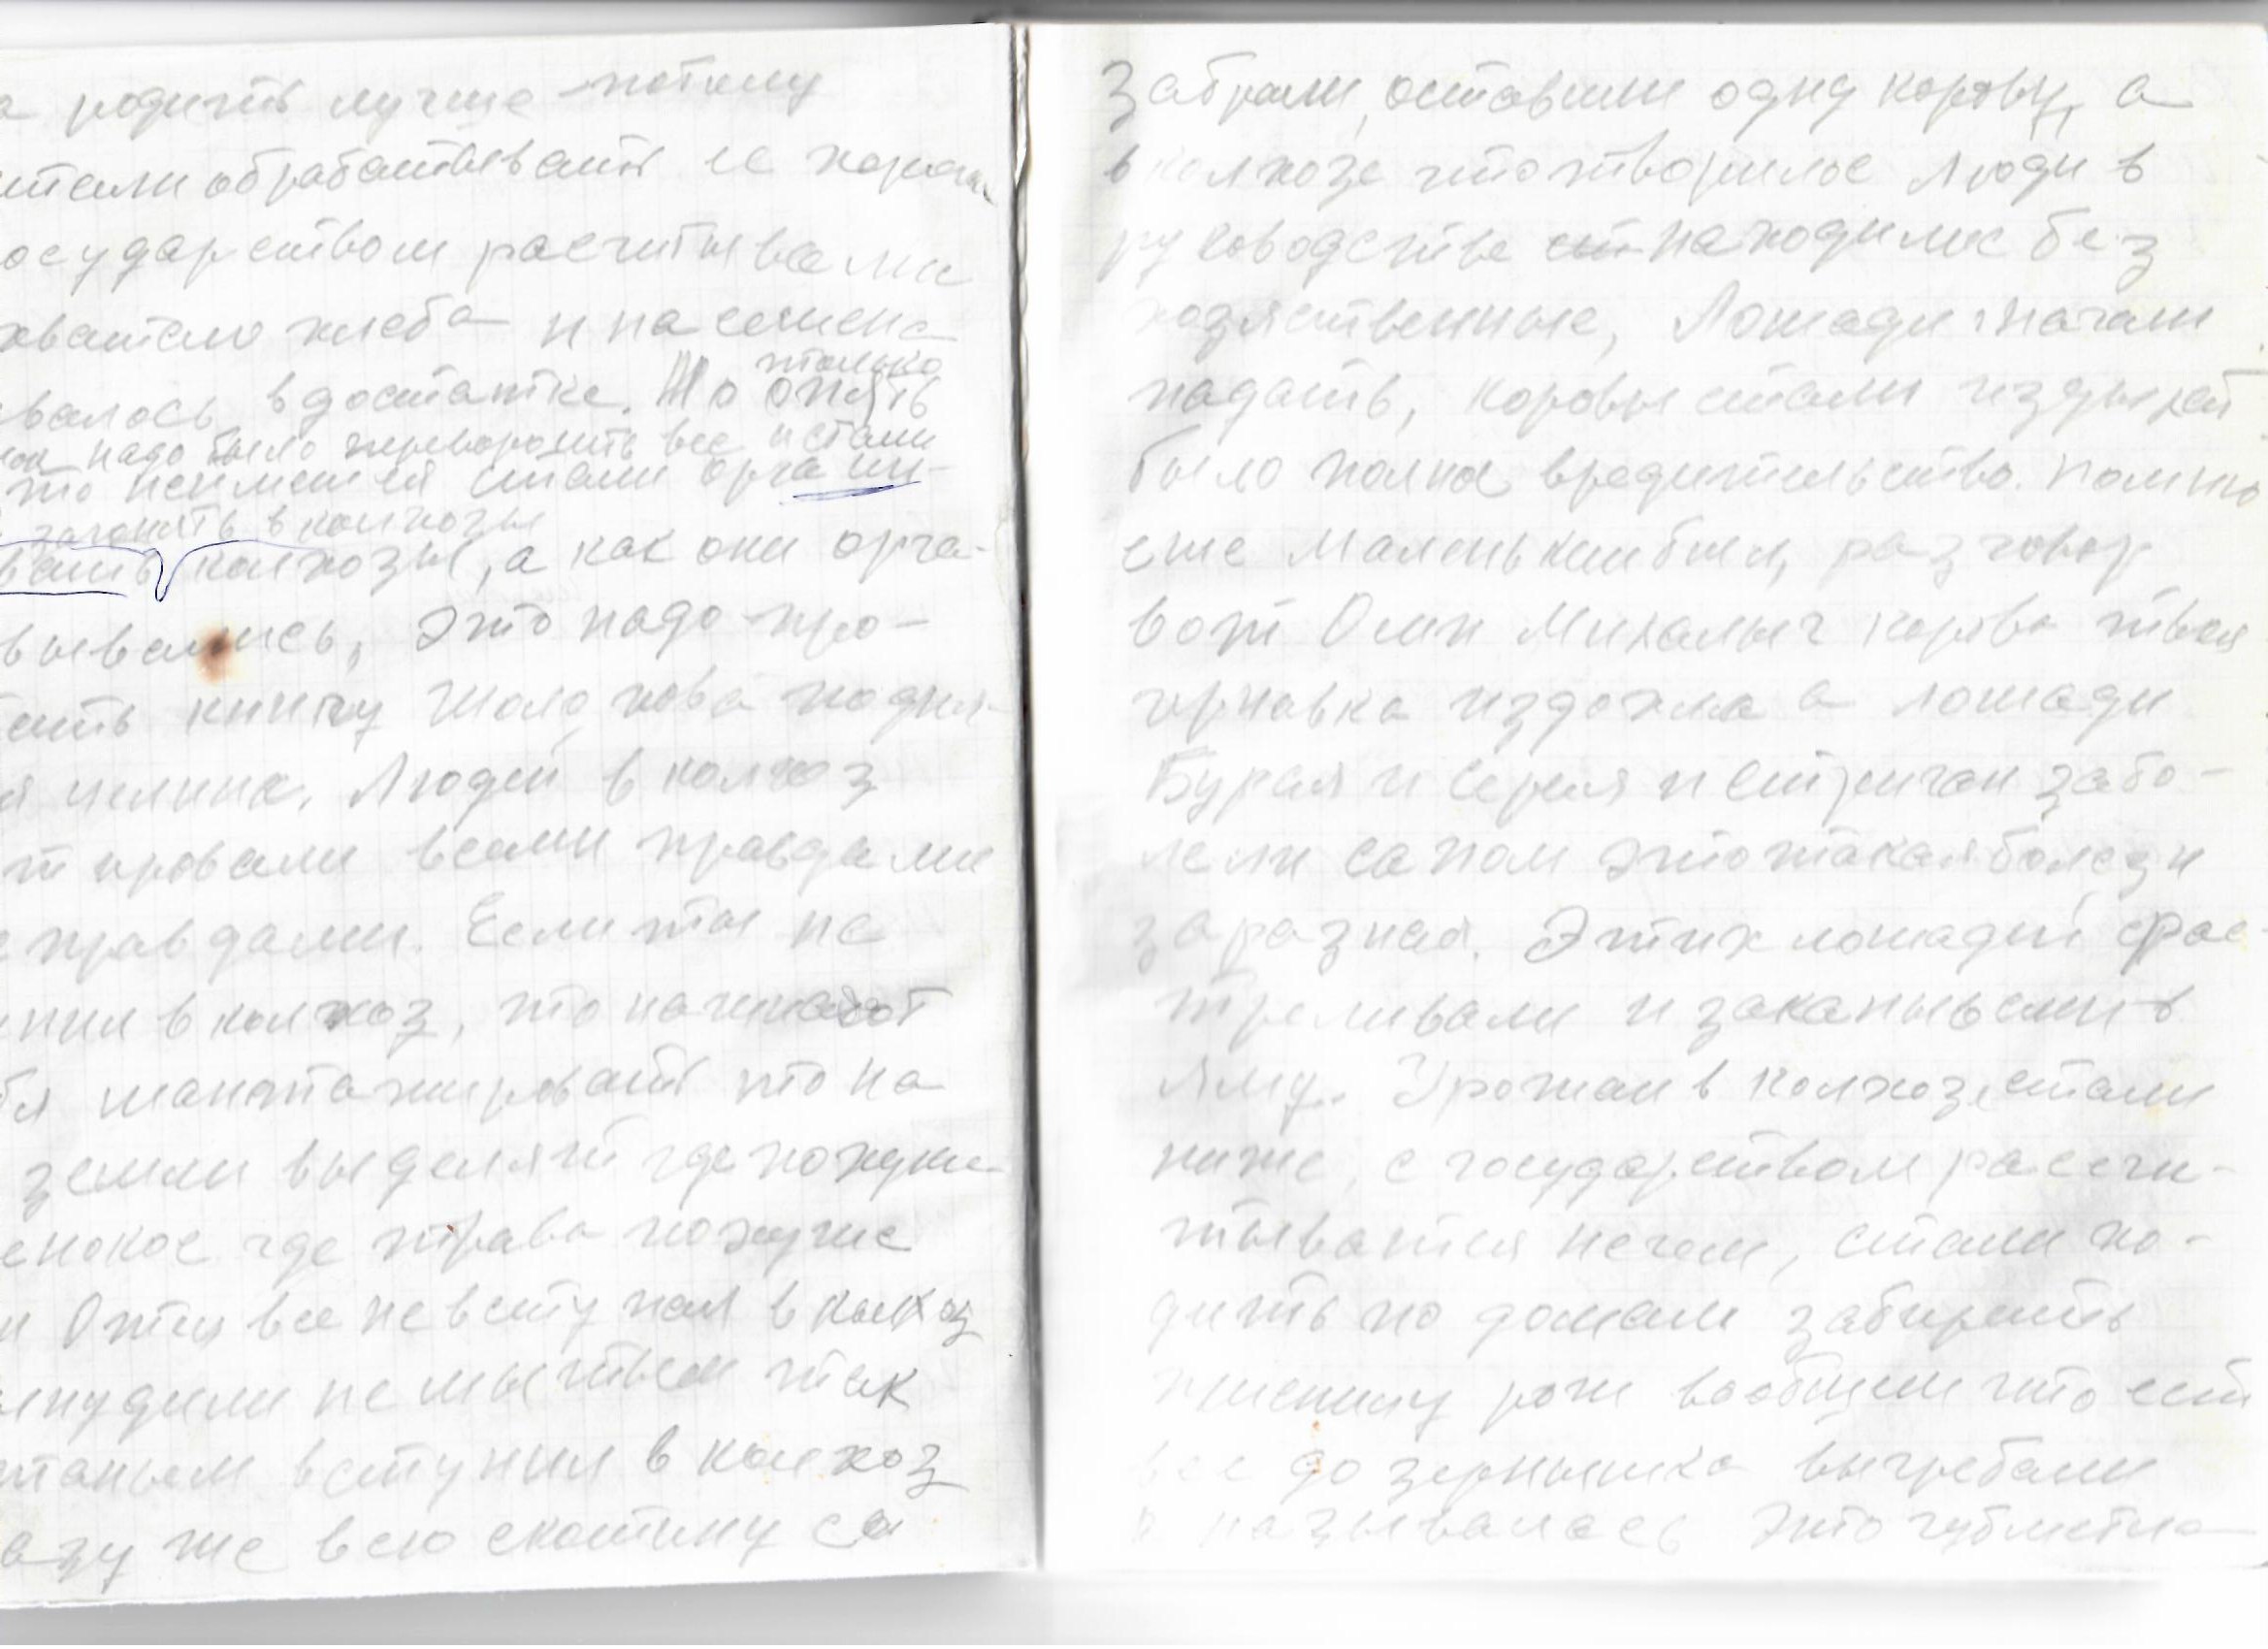 а родить лучше потому
стали обрабатывать ее хорош
осударством расчитывали
хватало хлеба и на семена
валось в достатке. Но опять
только
надо было переворошить все и стали
то неимется стали органи-
загонять в колхозы
вать колхозы, а как они орга-
вывались, это надо про-
тать книгу Шолохова подня-
я целина. Людей в колхоз
тировали всеми правдами
е правдами. Если ты не
пил в колхоз, то начинают
бя шантажировать то на
земли выделят где похуже
енокос где трава похуже
и Отец все не вступал в колхоз
нудили не мытьем так
таньем вступил в колхоз
азу же всю скотину со
забрали, оставили одну корову, а
в колхозе что творилос люди в
руководстве находилис без
хозяственные, Лошади начали
падать, коровы стали издыхат
было полное вредительство. Помню
еше маленьким был, разговор
вот Олин Михалыч корова твоя
чернавка издохла а лошади
Бурая и Серая и Стриган забо-
лели сапом это такая болезн
заразная. Этих лошадей рас-
треливали и закапывали в
яму. Урожаи в колхоз стали
ниже, с государством рассчи-
тыватся нечем, стали хо-
дить по домам забирать
пшеницу рож вообщем что ест
все до зернышка выгребали
и называлась это чубметла